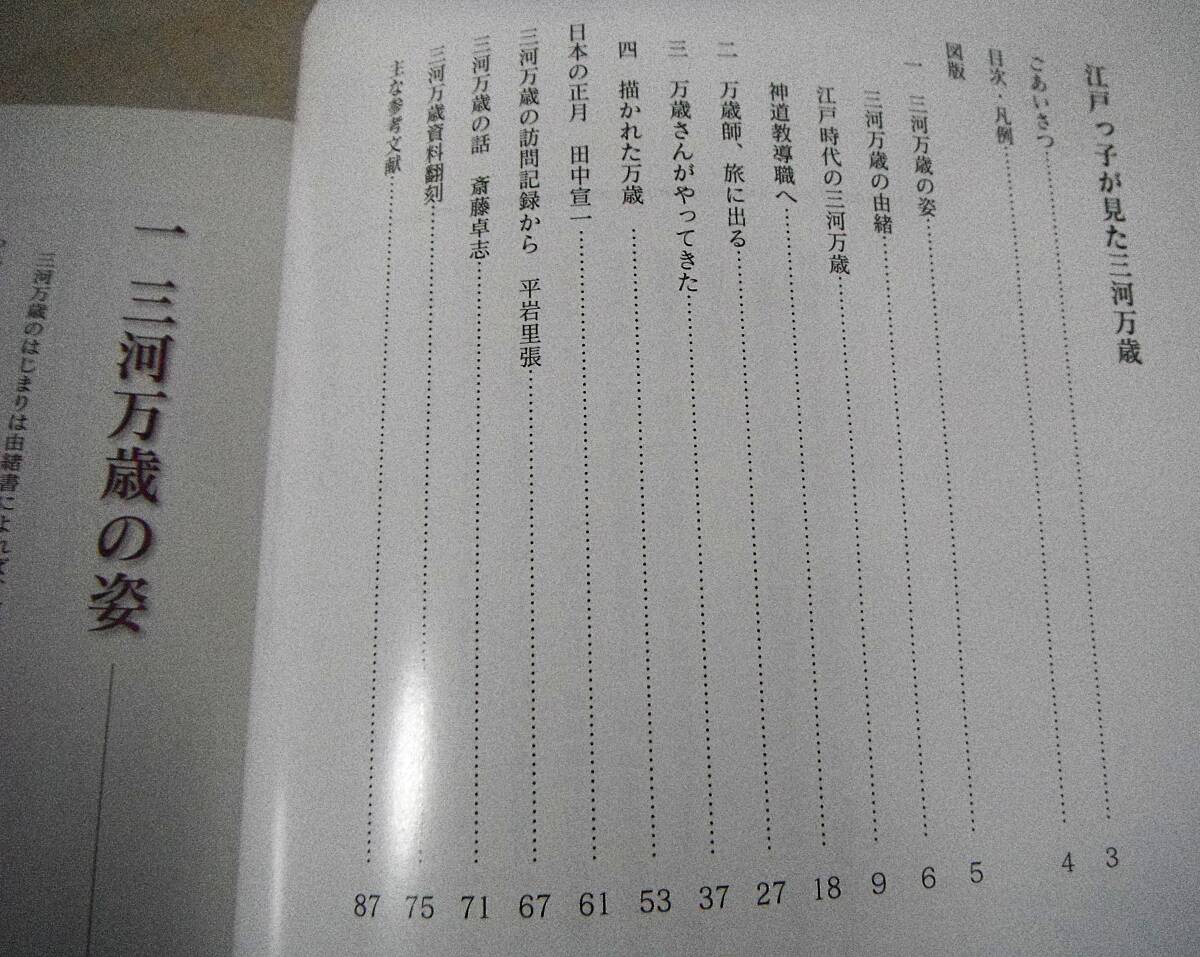 江戸っ子が見た三河万歳
ごあいさつ……3
目次・凡例……4
図版
一 三河万歳の姿……5
三河万歳の由緒……6
江戸時代の三河万歳……9
神道教導職へ……18
二 万歳師、旅に出る……27
三 万歳さんがやってきた……37
四 描かれた万歳……53
日本の正月 田中宣一……61
三河万歳の訪問記録から 平岩里張……67
三河万歳の話 斎藤卓志……71
三河万歳資料翻刻……75
主な参考文献……87
一 三河万歳の姿
三河万歳のはじまりは由緒書によれば、